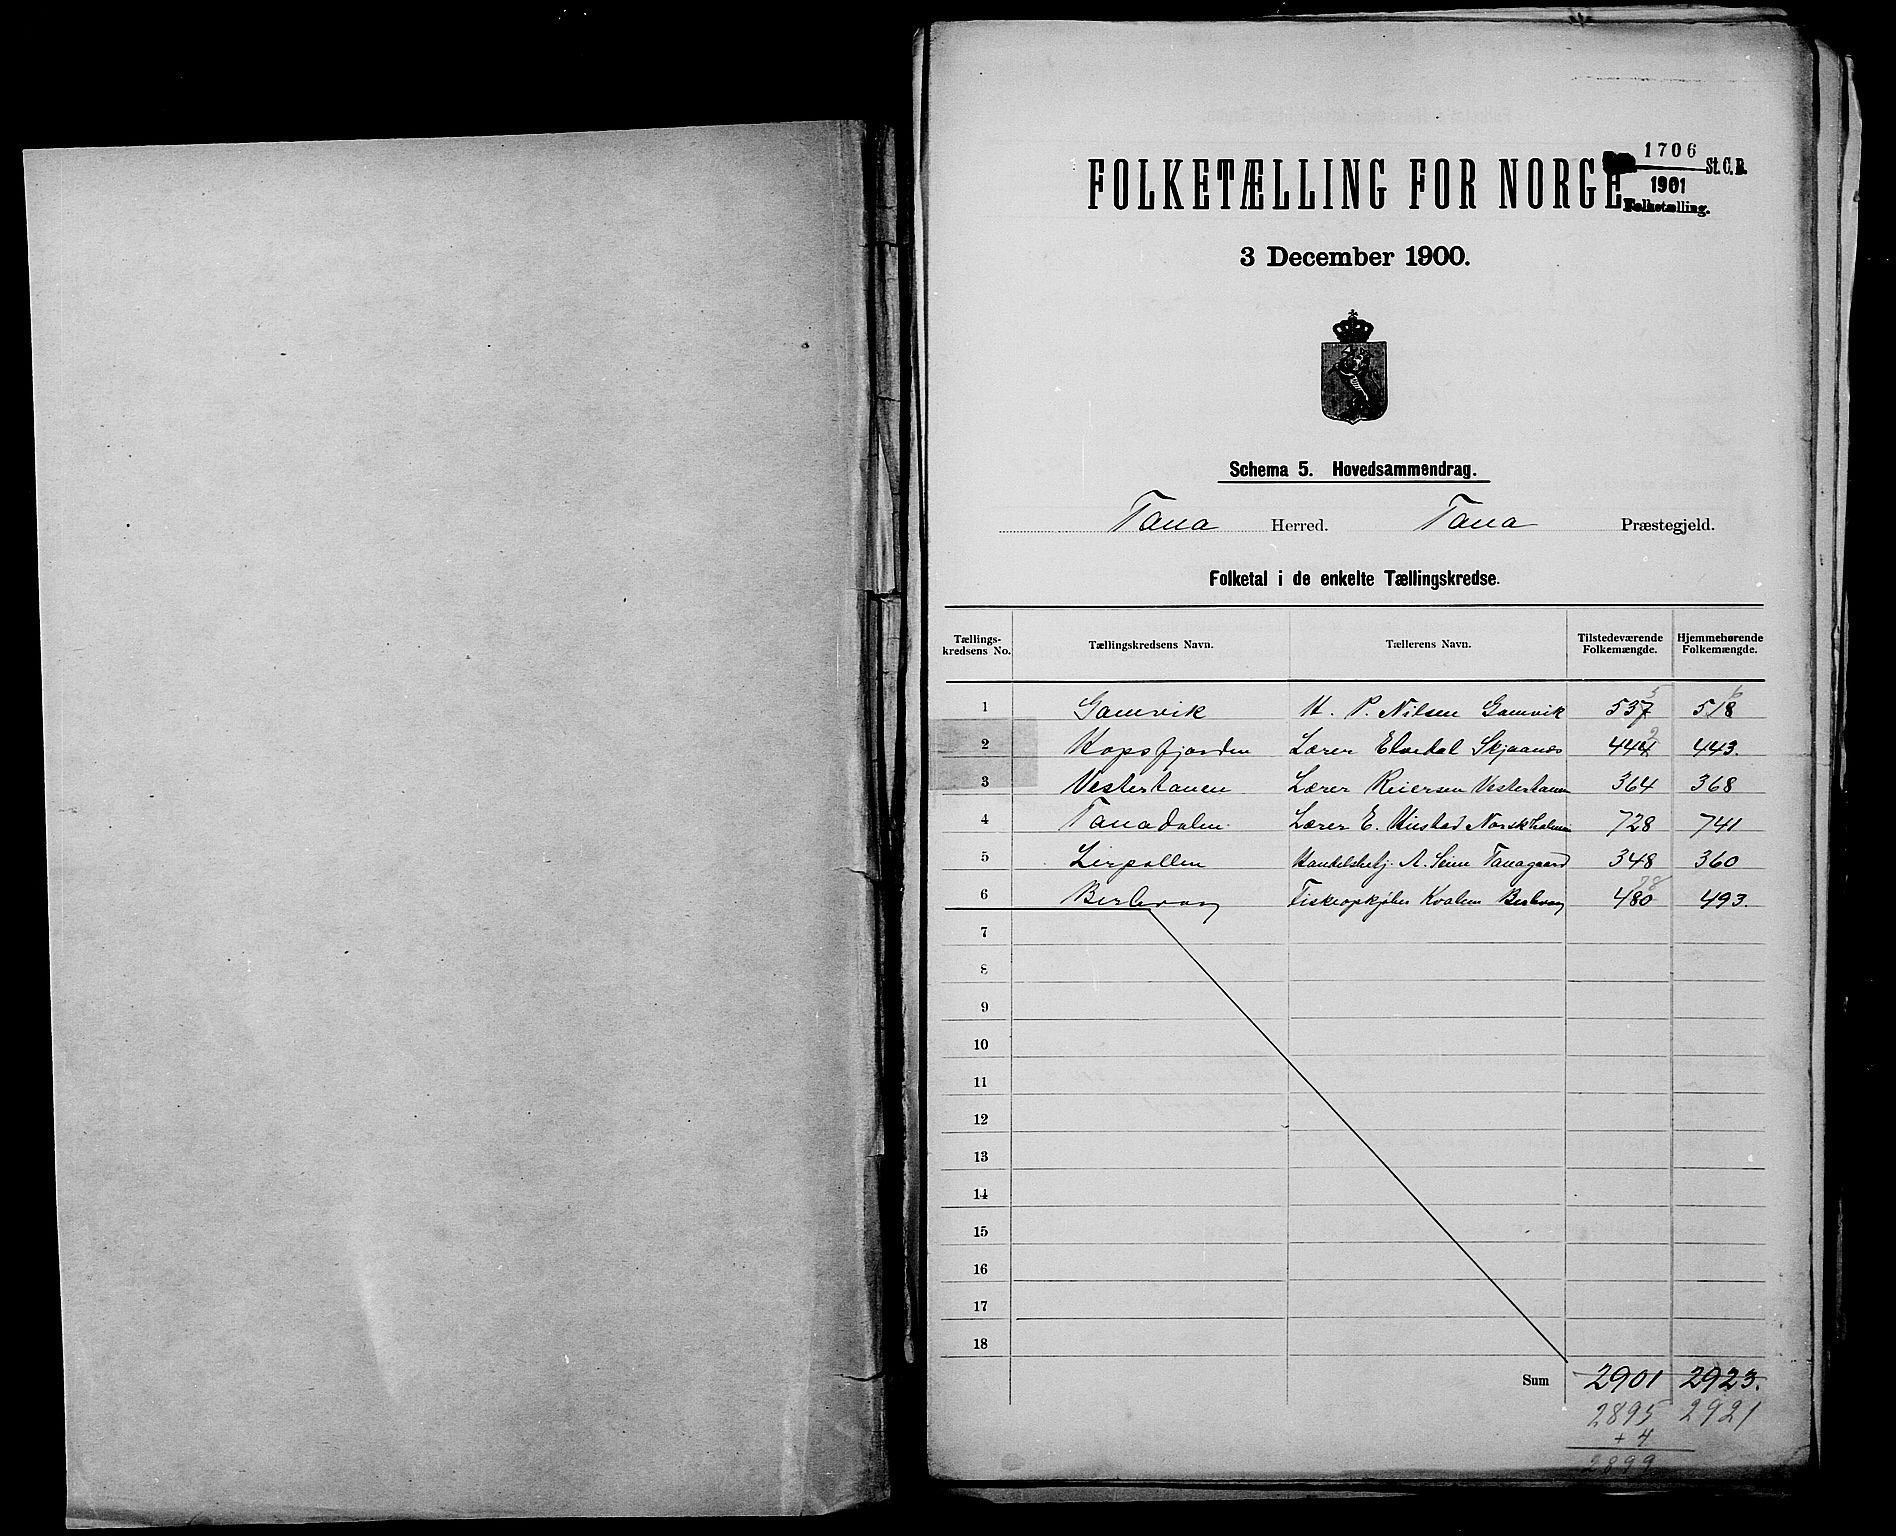 FOLKETÆLLING FOR NORGE
1706
1901
St. C. B.
Folketælling.
3 December 1900.
Schema 5. Hovedsammendrag.
Tana Herred. Tana Præstegjeld.
Folketal i de enkelte Tællingskredse.
Tællings-kredsens No. Tællingskredsens Navn. Tællerens Navn. Tilstedeværende Folkemængde. Hjemmehørende Folkemængde.
1 Gamvik H. P. Nilsen Gamvik 537 5 518 6
2 Hopsfjorden Lærer Elvedal Skjaanes 444 2 443.
3 Vestertanen Lærer Reiersen Vestertanen 364 368
4 Tanadalen Lærer E. Hustad Norskholmen 728 741
5 Lerpollen Handelsbetj. A. Seim Tanagaard 348 360
6 Berlevag Fiskeopkjøber Kvalem Berlevag 480 78 493.
7
8
9
10
11
12
13
14
15
16
17
18
Sum 2901 2923.
2895 2921
+ 4
2899